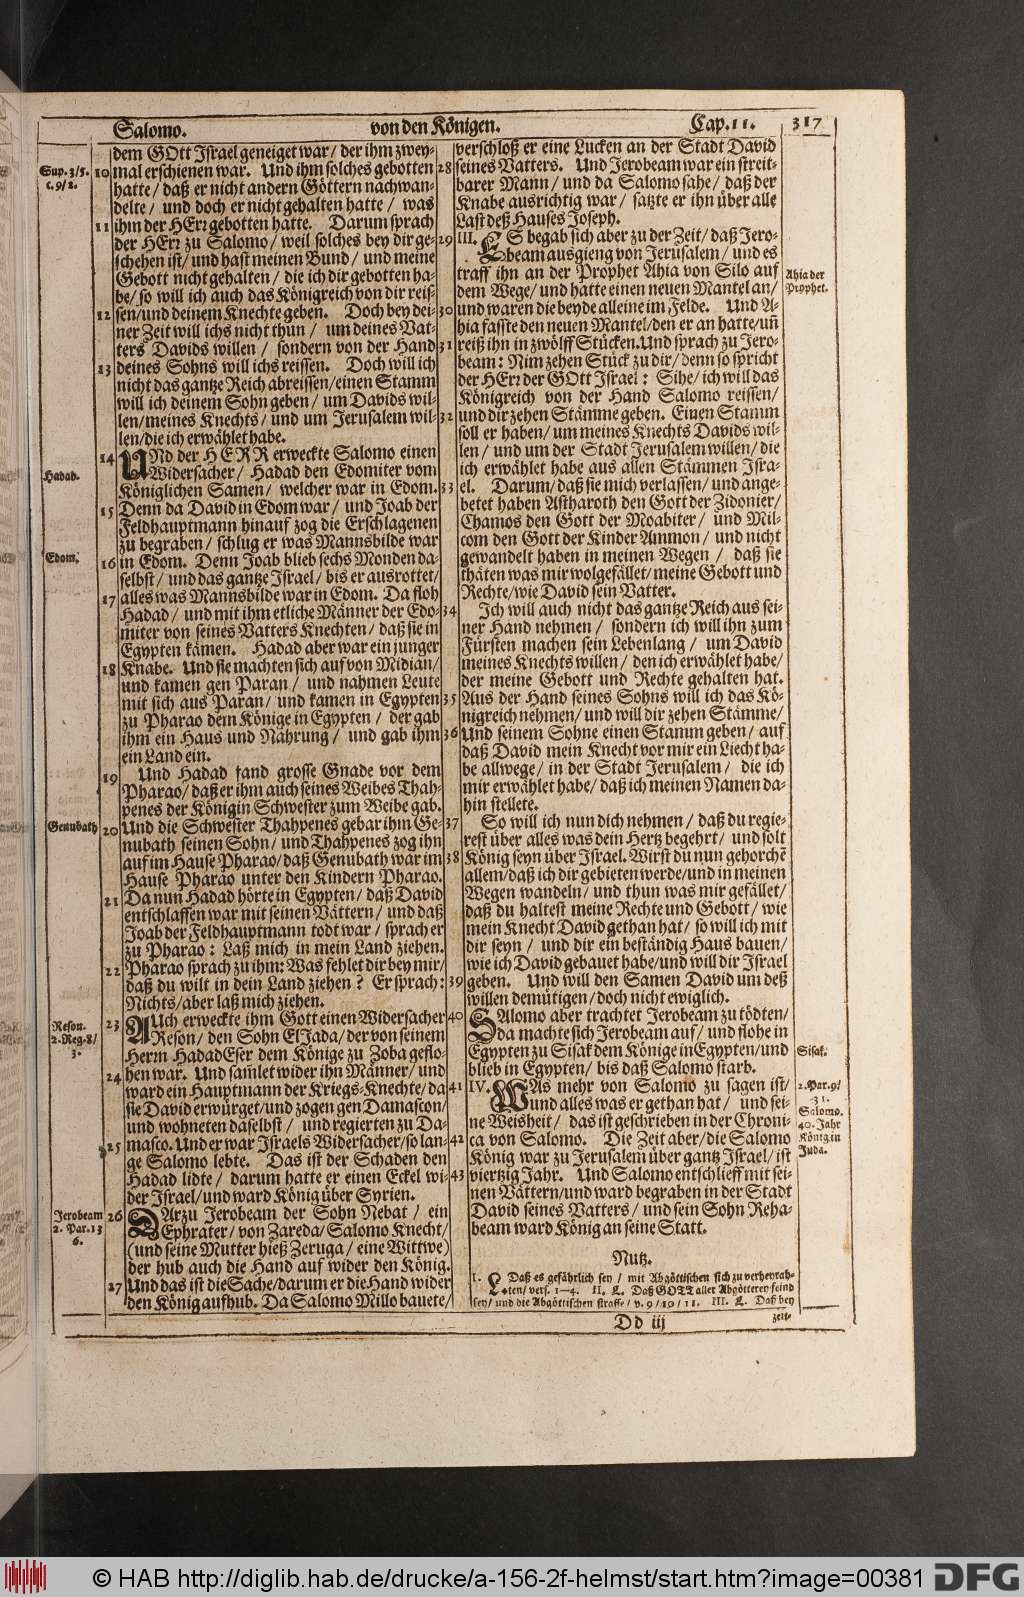 Salomo. von den Königen. Cap. 11. 317
Sup. 3/5.
c. 9/2.
Hadad.
Edom.
Genubath
Reson.
2. Reg. 8/
3.
Jerobeam
2. Par. 13
6.
dem GOtt Israel geneiget war/ der ihm zwey-
10 mal erschienen war. Und ihm solches gebotten
hatte/ daß er nicht andern Göttern nachwan-
delte/ und doch er nicht gehalten hatte/ was
11 ihm der HErr gebotten hatte. Darum sprach
der HErr zu Salomo/ weil solches bey dir ge-
schehen ist/ und hast meinen Bund/ und meine
Gebott nicht gehalten/ die ich dir gebotten ha-
be/ so will ich auch das Königreich von dir reis-
12 sen/ und deinem Knechte geben. Doch bey dei-
ner Zeit will ichs nicht thun/ um deines Vat-
ters Davids willen/ sondern von der Hand
13 deines Sohns will ichs reissen. Doch will ich
nicht das gantze Reich abreissen/ einen Stamm
will ich deinem Sohn geben/ um Davids wil-
len/ meines Knechts/ und um Jerusalem wil-
len/ die ich erwählet habe.
14 UNd der HERR erweckte Salomo einen
Widersacher/ Hadad den Edomiter vom
Königlichen Samen/ welcher war in Edom.
15 Denn da David in Edom war/ und Joab der
Feldhauptmann hinauf zog die Erschlagenen
zu begraben/ schlug er was Mannsbilde war
16 in Edom. Denn Joab blieb sechs Monden da-
selbst/ und das gantze Israel/ bis er ausrottet/
17 alles was Mannsbilde war in Edom. Da floh
Hadad/ und mit ihm etliche Männer der Edo-
miter von seines Vatters Knechten/ daß sie in
Egypten kämen. Hadad aber war ein junger
18 Knabe. Und sie machten sich auf von Midian/
und kamen gen Paran/ und nahmen Leute
mit sich aus Paran/ und kamen in Egypten
zu Pharao dem Könige in Egypten/ der gab
ihm ein Haus und Nahrung/ und gab ihm
ein Land ein.
19 Und Hadad fand grosse Gnade vor dem
Pharao/ daß er ihm auch seines Weibes Thah-
penes der Königin Schwester zum Weibe gab.
20 Und die Schwester Thahpenes gebar ihm Ge-
nubath seinen Sohn/ und Thahpenes zog ihn
auf im Hause Pharao/ daß Genubath war im
Hause Pharao unter den Kindern Pharao.
21 Da nun Hadad hörte in Egypten/ daß David
entschlaffen war mit seinen Vättern/ und daß
Joab der Feldhauptmann todt war/ sprach er
zu Pharao: Laß mich in mein Land ziehen.
22 Pharao sprach zu ihm: Was fehlet dir bey mir/
daß du wilt in dein Land ziehen? Er sprach:
Nichts/ aber laß mich ziehen.
23 AUch erweckte ihm Gott einen Widersacher
Reson/ den Sohn ElJada/ der von seinem
Herrn HadadEser dem Könige zu Zoba geflo-
24 hen war. Und sam̃let wider ihn Männer/ und
ward ein Hauptmann der Kriegs-Knechte/ da
sie David erwürget/ und zogen gen Damascon/
und wohneten daselbst/ und regierten zu Da-
25 masco. Und er war Israels Widersacher/ so lan-
ge Salomo lebte. Das ist der Schaden den
Hadad lidte/ darum hatte er einen Eckel wi-
der Israel/ und ward König über Syrien.
26 DArzu Jerobeam der Sohn Nebat/ ein
Ephrater/ von Zareda/ Salomo Knecht/
(und seine Mutter hieß Zeruga/ eine Wittwe)
der hub auch die Hand auf wider den König.
27 Und das ist die Sache/ darum er die Hand wider
den König aufhub. Da Salomo Millo bauete/
verschloß er eine Lucken an der Stadt David
28 seines Vatters. Und Jerobeam war ein streit-
barer Mann/ und da Salomo sahe/ daß der
Knabe ausrichtig war/ satzte er ihn über alle
Last deß Hauses Joseph.
29 III. ES begab sich aber zu der Zeit/ daß Jero-
beam ausgieng von Jerusalem/ und es
traff ihn an der Prophet Ahia von Silo auf
dem Wege/ und hatte einen neuen Mantel an/
30 und waren die beyde alleine im Felde. Und A-
hia fasste den neuen Mantel/ den er an hatte/ uñ
31 reiß ihn in zwölff Stücken. Und sprach zu Jero-
beam: Nim zehen Stück zu dir/ denn so spricht
der HErr der GOtt Israel: Sihe/ ich will das
Königreich von der Hand Salomo reissen/
32 und dir zehen Stämme geben. Einen Stamm
soll er haben/ um meines Knechts Davids wil-
len/ und um der Stadt Jerusalem willen/ die
ich erwählet habe aus allen Stämmen Isra-
33 el. Darum/ daß sie mich verlassen/ und ange-
betet haben Astharoth den Gott der Zidonier/
Chamos den Gott der Moabiter/ und Mil-
com den Gott der Kinder Ammon/ und nicht
gewandelt haben in meinen Wegen/ daß sie
thäten was mir wolgefället/ meine Gebott und
Rechte/ wie David sein Vatter.
34 Ich will auch nicht das gantze Reich aus sei-
ner Hand nehmen/ sondern ich will ihn zum
Fürsten machen sein Lebenlang/ um David
meines Knechts willen/ den ich erwählet habe/
der meine Gebott und Rechte gehalten hat.
35 Aus der Hand seines Sohns will ich das Kö-
nigreich nehmen/ und will dir zehen Stämme/
36 Und seinem Sohne einen Stamm geben/ auf
daß David mein Knecht vor mir ein Liecht ha-
be allwege/ in der Stadt Jerusalem/ die ich
mir erwählet habe/ daß ich meinen Namen da-
hin stellete.
37 So will ich nun dich nehmen/ daß du regie-
rest über alles was dein Hertz begehrt/ und solt
38 König seyn über Israel. Wirst du nun gehorchẽ
allem/ daß ich dir gebieten werde/ und in meinen
Wegen wandeln/ und thun was mir gefället/
daß du haltest meine Rechte und Gebott/ wie
mein Knecht David gethan hat/ so will ich mit
dir seyn/ und dir ein beständig Haus bauen/
wie ich David gebauet habe/ und will dir Israel
39 geben. Und will den Samen David um deß
willen demütigen/ doch nicht ewiglich.
40 SAlomo aber trachtet Jerobeam zu tödten/
da machte sich Jerobeam auf/ und flohe in
Egypten zu Sisak dem Könige in Egypten/ und
blieb in Egypten/ bis daß Salomo starb.
41 IV. WAs mehr von Salomo zu sagen ist/
und alles was er gethan hat/ und sei-
ne Weisheit/ das ist geschrieben in der Chroni-
42 ca von Salomo. Die Zeit aber/ die Salomo
König war zu Jerusalem über gantz Israel/ ist
43 viertzig Jahr. Und Salomo entschlieff mit sei-
nen Vättern/ und ward begraben in der Stadt
David seines Vatters/ und sein Sohn Reha-
beam ward König an seine Statt.
Nutz.
I. L. Daß es gefährlich sey/ mit Abgöttischen sich zu verheyrah-
ten/ vers. 1—4. II. L. Daß GOTT aller Abgötterey feind
sey/ und die Abgöttischen straffe/ v. 9/10/11. III. L. Daß bey
Dd iij zeit-
Ahia der
Prophet.
Sisak.
2. Par. 9/
31.
Salomo.
40. Jahr
König in
Juda.
© HAB http://diglib.hab.de/drucke/a-156-2f-helmst/start.htm?image=00381 DFG